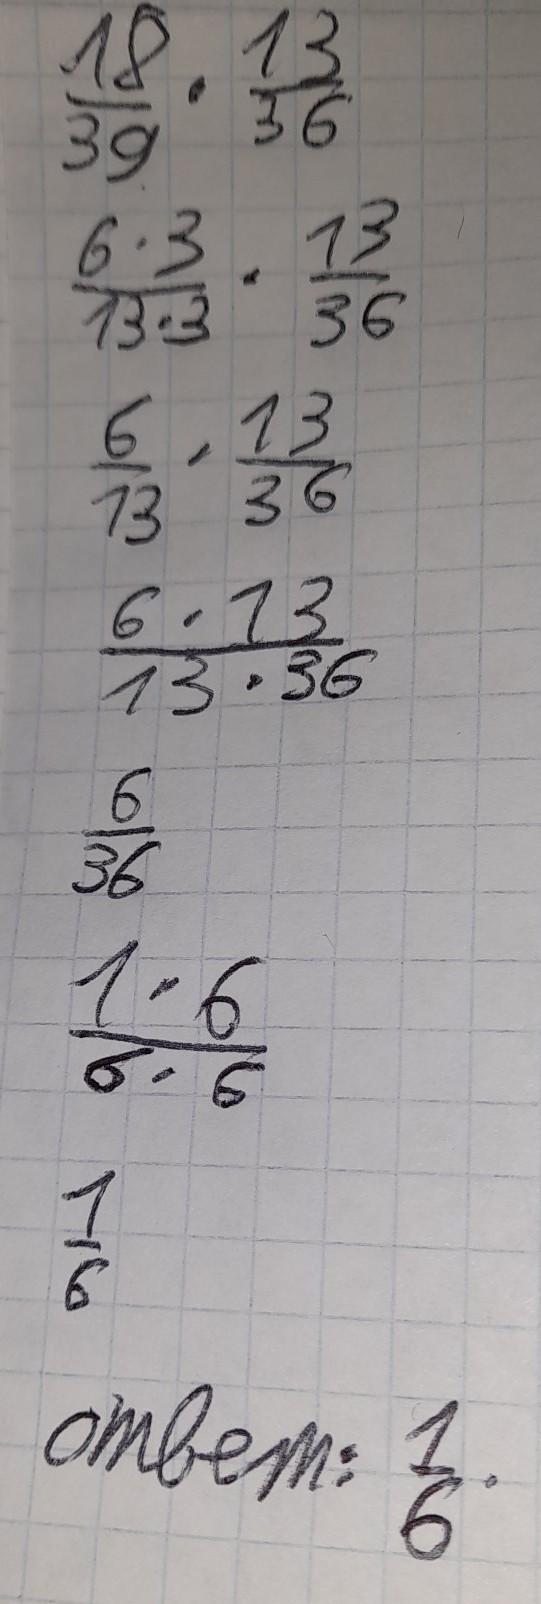 18/39 · 13/36
6·3/13·3 · 13/36
6/13 · 13/36
6·13/13·36
6/36
1·6/6·6
1/6
ответ: 1/6.